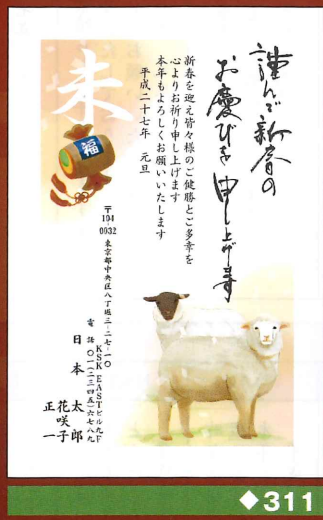 謹んで新春の
お慶びを申し上げます
新春を迎え皆々様のご健勝とご多幸を
心よりお祈り申し上げます
本年もよろしくお願いいたします
平成二十七年 元旦
未
福
〒104
0032 東京都中央区八丁堀三-二七-一〇
KSK EASTビル九F
電話 〇一(二三四五)六七八九
日本 太郎
花咲子
正一
◆311